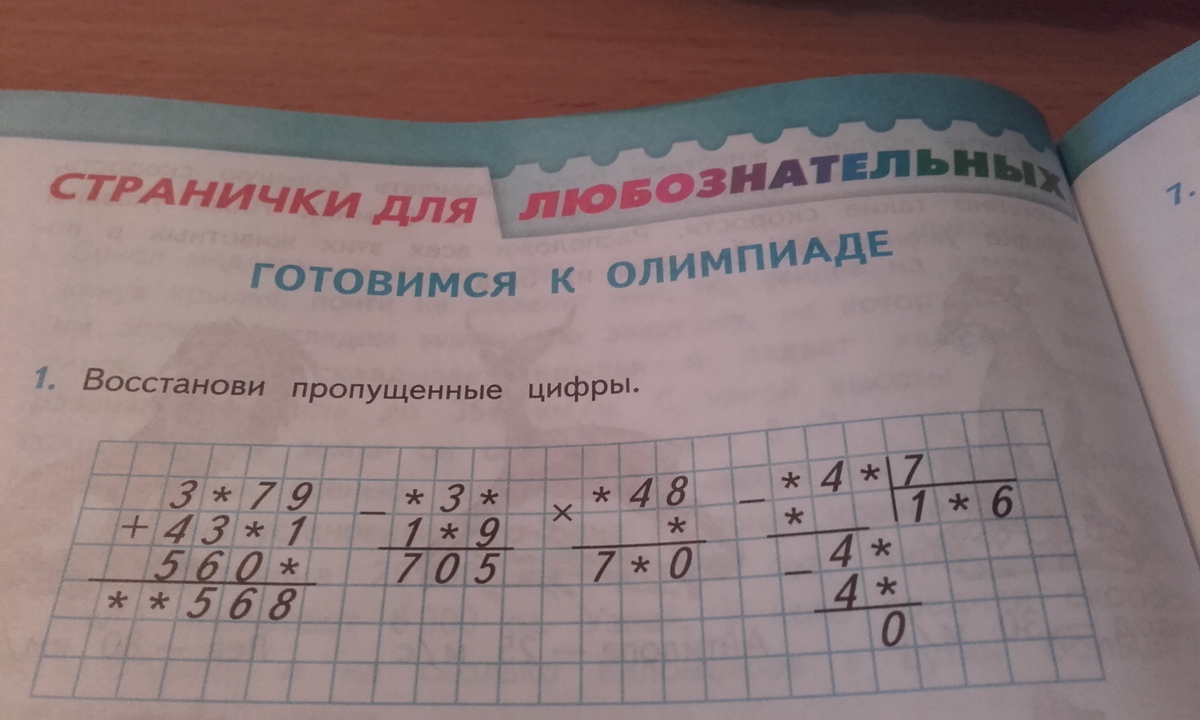 СТРАНИЧКИ ДЛЯ ЛЮБОЗНАТЕЛЬНЫХ
ГОТОВИМСЯ К ОЛИМПИАДЕ
1. Восстанови пропущенные цифры.
3 * 7 9
+ 4 3 * 1
5 6 0 *
* * 5 6 8
− * 3 *
1 * 9
7 0 5
× * 4 8
*
7 * 0
− * 4 * 7
* 1 * 6
− 4 *
4 *
0
1.